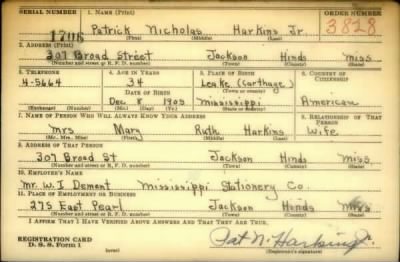 SERIAL NUMBER 1. NAME (Print) ORDER NUMBER
1706 Patrick Nicholas Harkins Jr. 3828
(First) (Middle) (Last)
2. ADDRESS (Print)
307 Broad Street Jackson Hinds Miss
(Number and street or R. F. D. number) (Town) (County) (State)
3. TELEPHONE 4. AGE IN YEARS 5. PLACE OF BIRTH 6. COUNTRY OF CITIZENSHIP
4-5664 34 Leake (Carthage)
DATE OF BIRTH (Town or county)
Dec 8 1905 Mississippi American
(Exchange) (Number) (Mo.) (Day) (Yr.) (State or country)
7. NAME OF PERSON WHO WILL ALWAYS KNOW YOUR ADDRESS 8. RELATIONSHIP OF THAT PERSON
Mrs Mary Ruth Harkins Wife
(Mr., Mrs., Miss) (First) (Middle) (Last)
9. ADDRESS OF THAT PERSON
307 Broad St Jackson Hinds Miss.
(Number and street or R. F. D. number) (Town) (County) (State)
10. EMPLOYER'S NAME
Mr. W. I. Dement Mississippi Stationery Co.
11. PLACE OF EMPLOYMENT OR BUSINESS
275 East Pearl Jackson Hinds Miss
(Number and street or R. F. D. number) (Town) (County) (State)
I AFFIRM THAT I HAVE VERIFIED ABOVE ANSWERS AND THAT THEY ARE TRUE.
REGISTRATION CARD
D. S. S. Form 1 Pat N. Harkins Jr.
(Registrant's signature)